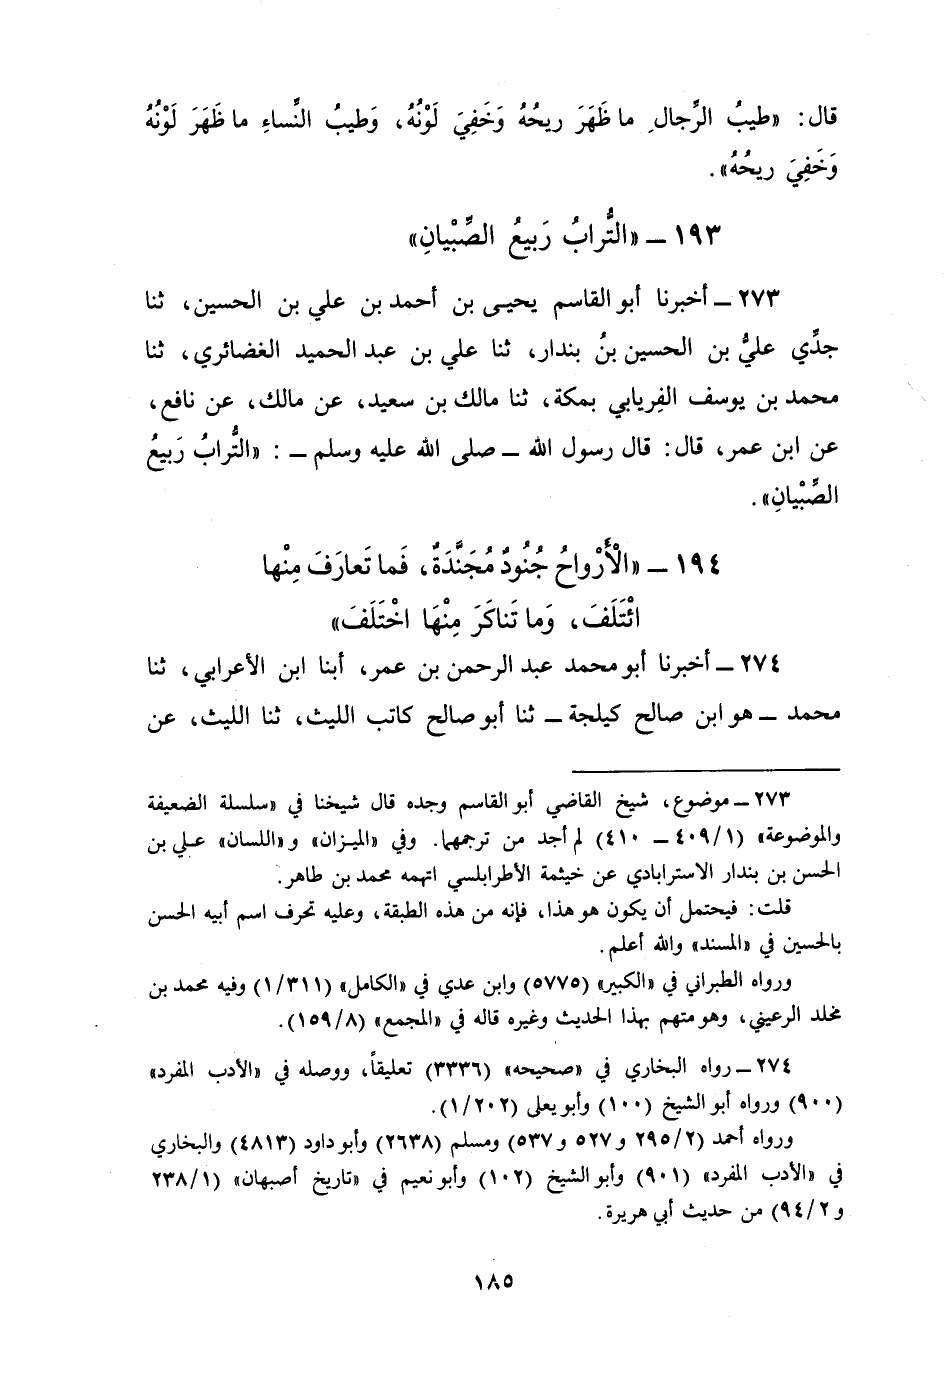 قال: «طيبُ الرِّجالِ ما ظَهَرَ ريحُهُ وَخَفِيَ لَوْنُهُ، وَطيبُ النِّساءِ ما ظَهَرَ لَوْنُهُ
وَخَفِيَ ريحُهُ».
١٩٣ ــ «التُّرابُ رَبيعُ الصِّبْيانِ»
٢٧٣ ــ أخبرنا أبو القاسم يحيى بن أحمد بن علي بن الحسين، ثنا
جدِّي عليُّ بن الحسين بنُ بندار، ثنا علي بن عبد الحميد الغضائري، ثنا
محمد بن يوسف الفِريابي بمكة، ثنا مالك بن سعيد، عن مالك، عن نافع،
عن ابن عمر، قال: قال رسول الله ــ صلى الله عليه وسلم ــ : «التُّرابُ رَبيعُ
الصِّبْيانِ».
١٩٤ ــ «الْأَرْواحُ جُنُودٌ مُجَنَّدَةٌ، فَما تَعارَفَ مِنْها
ائْتَلَفَ، وَما تَناكَرَ مِنْهَا اخْتَلَفَ»
٢٧٤ ــ أخبرنا أبو محمد عبد الرحمن بن عمر، أبنا ابن الأعرابي، ثنا
محمد ــ هو ابن صالح كيلجة ــ ثنا أبو صالح كاتب الليث، ثنا الليث، عن
٢٧٣ ــ موضوع، شيخ القاضي أبو القاسم وجده قال شيخنا في «سلسلة الضعيفة
والموضوعة» (٤٠٩/١ ــ ٤١٠) لم أجد من ترجمهما. وفي «الميزان» و«اللسان» علي بن
الحسن بن بندار الاسترابادي عن خيثمة الأطرابلسي اتهمه محمد بن طاهر.
قلت: فيحتمل أن يكون هو هذا، فإنه من هذه الطبقة، وعليه تحرف اسم أبيه الحسن
بالحسين في «المسند» والله أعلم.
ورواه الطبراني في «الكبير» (٥٧٧٥) وابن عدي في «الكامل» (١/٣١١) وفيه محمد بن
مخلد الرعيني، وهو متهم بهذا الحديث وغيره قاله في «المجمع» (١٥٩/٨).
٢٧٤ ــ رواه البخاري في «صحيحه» (٣٣٣٦) تعليقاً، ووصله في «الأدب المفرد»
(٩٠٠) ورواه أبو الشيخ (١٠٠) وأبو يعلى (١/٢٠٢).
ورواه أحمد (٢٩٥/٢ و ٥٢٧ و ٥٣٧) ومسلم (٢٦٣٨) وأبو داود (٤٨١٣) والبخاري
في «الأدب المفرد» (٩٠١) وأبو الشيخ (١٠٢) وأبو نعيم في «تاريخ أصبهان» (٢٣٨/١
و ٩٤/٢) من حديث أبي هريرة.
١٨٥